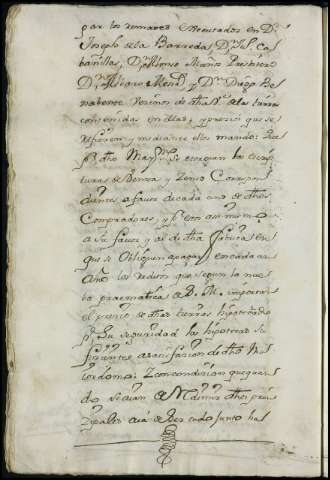 por los remates executados en Dn.
Joseph de la Barreda, Dn. Jph. Ca
banillas, Dn. Alonso Muñoz Presbitero
Dn. Alonso Mend. y Dn. Diego Be
nabente Vezinos de dha de las tierras
contenidas en ellas, y precio que se
refieren y mediante ellos mando: Que
pr. dho May.mo se otorguen las escrip
turas de Benta, y Zenso Correspon
dientes a favor de cada uno de dhos
Compradores, y pr. con asi mismo
a su favor y de dha fabrica en
que se obliguen a pagar en cada un
año los reditos que segun la nue
ba pracmatica de S. M. importare
el precio de dhas tierras hipotecando
pr. su seguridad las hipotecas su
ficientes a satisfaccion de dho Ma
iordomo. Y con condicion que quan
do se aian de redimir dhos prin
zipales a de ser todo junto las